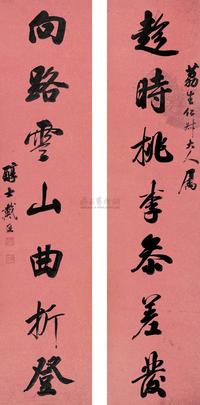 荔生仁棣大人属
趁時桃李參差發
向路雲山曲折登
醇士戴熙